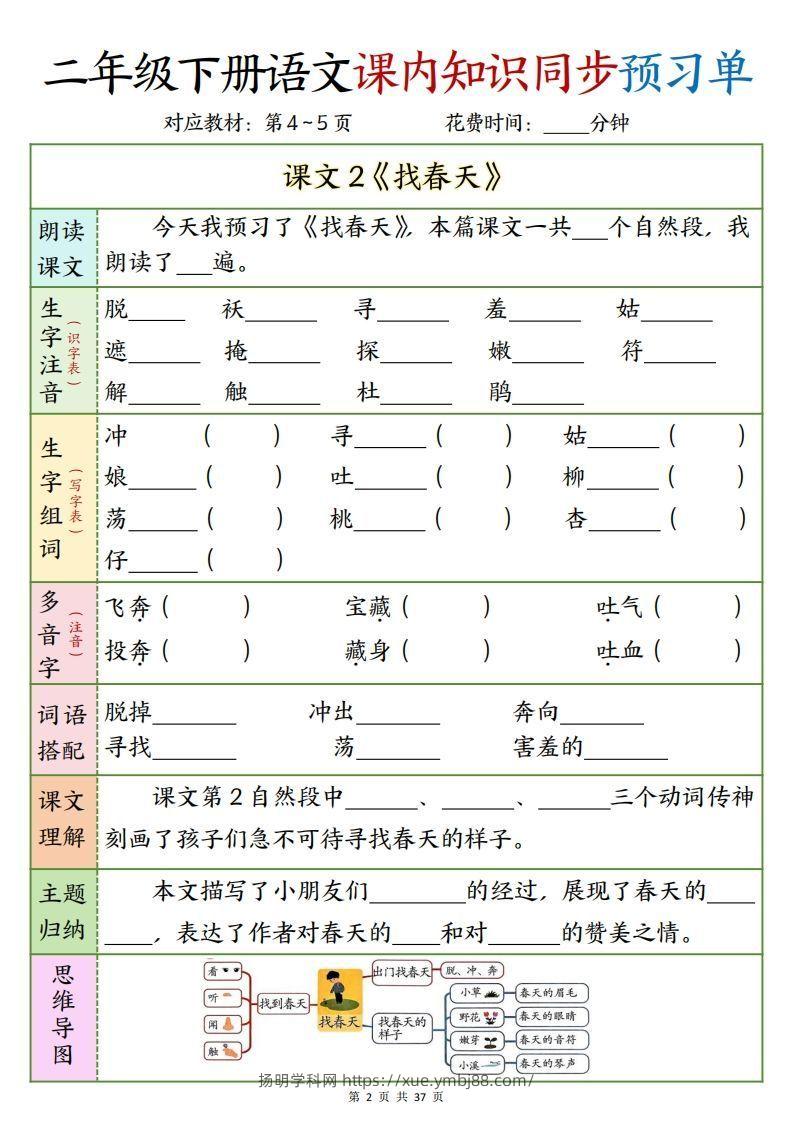 二年级下册语文课内知识同步预习单
对应教材：第4~5页 花费时间：____分钟
课文2《找春天》
朗读课文
今天我预习了《找春天》，本篇课文一共___个自然段，我
朗读了___遍。
生字注音（识字表）
脱_____ 袄______ 寻______ 羞______ 姑______
遮______ 掩______ 探______ 嫩______ 符______
解______ 触______ 杜______ 鹃______
生字组词（写字表）
冲 （ ） 寻______（ ） 姑______（ ）
娘______（ ） 吐______（ ） 柳______（ ）
荡______（ ） 桃______（ ） 杏______（ ）
仔______（ ）
多音字（注音）
飞奔（ ） 宝藏（ ） 吐气（ ）
投奔（ ） 藏身（ ） 吐血（ ）
词语搭配
脱掉_______ 冲出_______ 奔向_______
寻找_______ 荡_______ 害羞的_______
课文理解
课文第2自然段中______、______、______三个动词传神
刻画了孩子们急不可待寻找春天的样子。
主题归纳
本文描写了小朋友们________的经过，展现了春天的____
____，表达了作者对春天的____和对______的赞美之情。
思维导图
看
听
闻
触
找到春天
找春天
出门找春天
脱、冲、奔
找春天的
样子
小草 春天的眉毛
野花 春天的眼睛
嫩芽 春天的音符
小溪 春天的琴声
扬明学科网 https://xue.ymbj88.com/
第 2 页 共 37 页